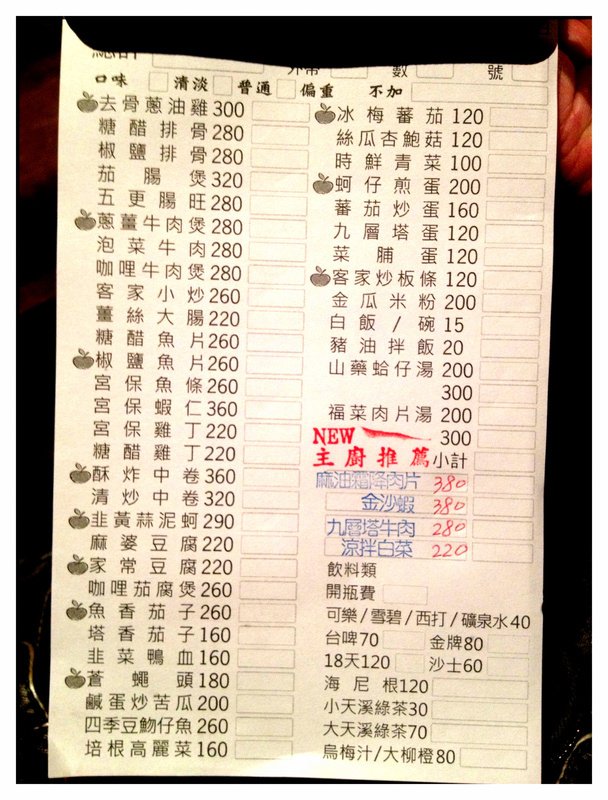 口味 清淡 普通 偏重 不加
去骨蔥油雞300
糖醋排骨280
椒鹽排骨280
茄腸煲320
五更腸旺280
蔥薑牛肉煲280
泡菜牛肉280
咖哩牛肉煲280
客家小炒260
薑絲大腸220
糖醋魚片260
椒鹽魚片260
宮保魚條260
宮保蝦仁360
宮保雞丁220
糖醋雞丁220
酥炸中卷360
清炒中卷320
韭黃蒜泥蚵290
麻婆豆腐220
家常豆腐220
咖哩茄腐煲260
魚香茄子260
塔香茄子160
韭菜鴨血160
蒼蠅頭180
鹹蛋炒苦瓜200
四季豆魩仔魚260
培根高麗菜160
數 號
冰梅蕃茄120
絲瓜杏鮑菇120
時鮮青菜100
蚵仔煎蛋200
蕃茄炒蛋160
九層塔蛋120
菜脯蛋120
客家炒板條120
金瓜米粉200
白飯/碗15
豬油拌飯20
山藥蛤仔湯200
300
福菜肉片湯200
NEW 300
主廚推薦小計
麻油霜降肉片 380
金沙蝦 380
九層塔牛肉 280
涼拌白菜 220
飲料類
開瓶費
可樂/雪碧/西打/礦泉水40
台啤70 金牌80
18天120 沙士60
海尼根120
小天溪綠茶30
大天溪綠茶70
烏梅汁/大柳橙80